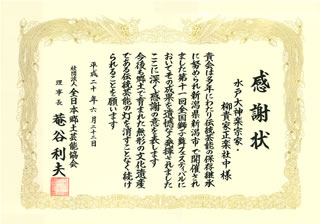 感謝状
水戸大神楽宗家
柳貴家正楽社中様
貴会は多年にわたり伝統芸能の保存継承
に努められ新潟県新潟市で開催され
ました第十一回全国獅子舞フェスティバルに
おいてその成果を遺憾なく発揮されました
ここに深く感謝の意を表します
今後も郷土で育まれた無形の文化遺産
である伝統芸能の灯を消すことなく続け
られることを願います
平成二十年六月二十二日
社団法人全日本郷土芸能協会
理事長
菴谷利夫